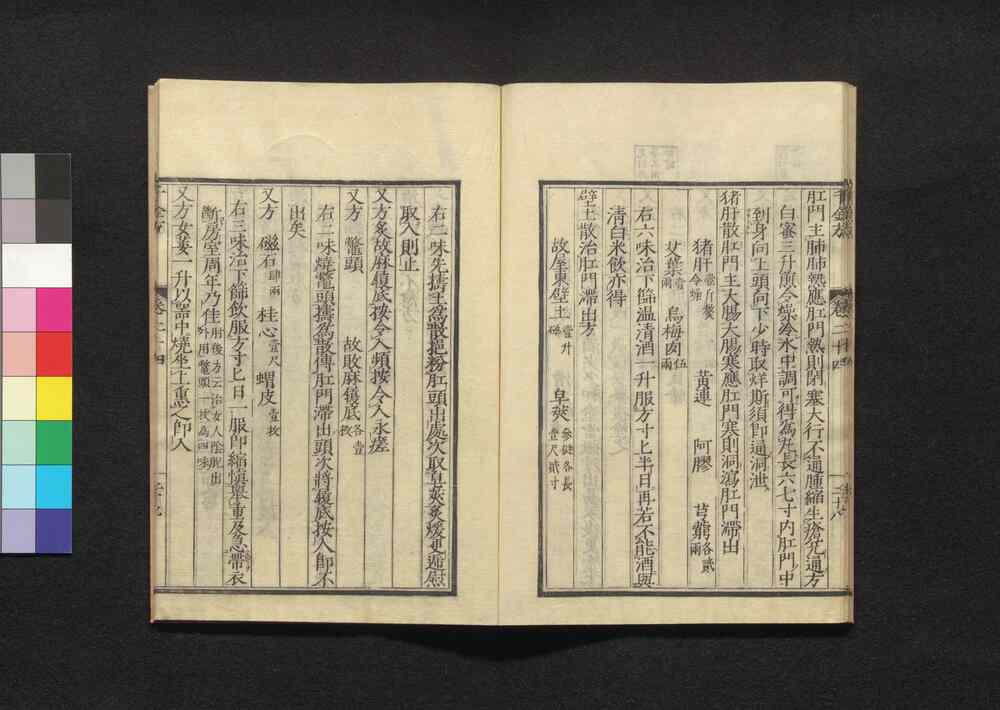 肛門主肺肺熱應肛門熱則閉塞大行不通腫縮生瘡兌通方
白蜜三升煎令燥冷水中調可得為丸長六七寸内肛門中
到身向上頭向下少時取烊斯須即通洞泄
猪肝散肛門主大腸大腸寒應肛門寒則洞瀉肛門滯出
猪肝壹斤熬令燥 黄連 阿膠 芎藭各貳兩
艾葉壹兩 烏梅肉伍兩
右六味治下篩温清酒一升服方寸匕半日再若不能酒與
清白米飲亦得
壁土散治肛門滯出方
故屋東壁土壹升碎 皁莢參鋌各長壹尺貳寸
右二味先擣土為散挹粉肛頭出處次取皁莢炙煖更遞熨
取入則止
又方炙故麻履底按令入頻按令入永瘥
又方 鼈頭 故敗麻履底各壹枚
右二味燒鼈頭擣為散傅肛門滯出頭次將履底按入即不
出矣
又方 磁石肆兩 桂心壹尺 蝟皮壹枚
右三味治下篩飲服方寸匕日一服即縮慎舉重及急帶衣
斷房室周年乃佳肘後方云治女人陰脱出外用鼈頭一枚為四味
又方女萎一升以器中燒坐上熏之即入
千金方 卷二十四 二十八